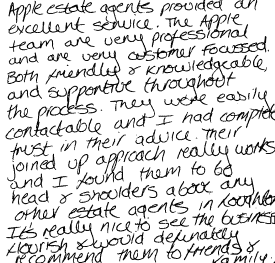 Apple estate agents provided an
excellent service. The Apple
team are very professional
and are very customer focussed.
Both friendly & knowledgeable
and supportive throughout
the process. They were easily
contactable and I had complete
trust in their advice. Their
joined up approach really works
and I found them to be
head & shoulders above any
other estate agents in
It's really nice to see the business
flourish & would definately
recommend them to friends &
family